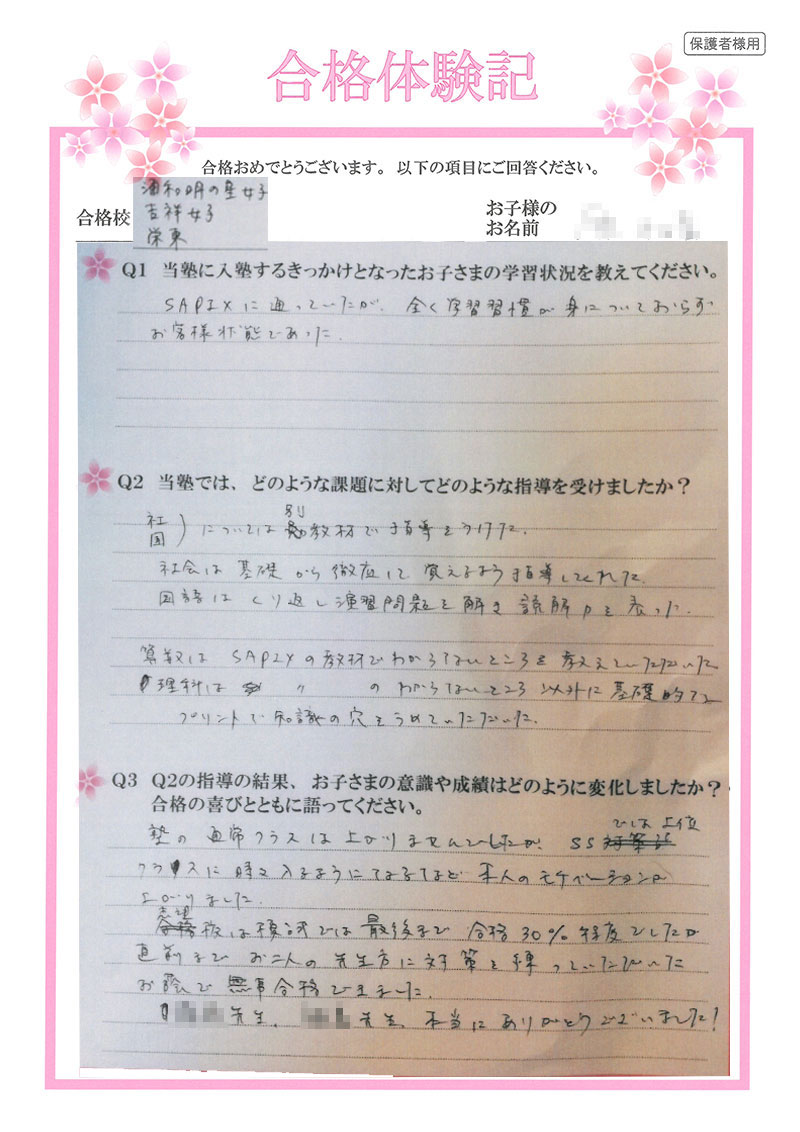 保護者様用
合格体験記
合格おめでとうございます。以下の項目にご回答ください。
合格校
浦和明の星女子
吉祥女子
栄東
お子様の
お名前
Q1 当塾に入塾するきっかけとなったお子さまの学習状況を教えてください。
SAPIXに通っていたが、全く学習習慣が身についておらず
お客様状態であった。
Q2 当塾では、どのような課題に対してどのような指導を受けましたか?
社
国 )については別教材で指導をうけた。
社会は基礎から徹底して覚えるよう指導してくれた。
国語はくり返し演習問題を解き読解力を養った。
算数はSAPIXの教材でわからないところを教えていただいた
理科は 〃 のわからないところ以外に基礎的な
プリントで知識の穴をうめていただいた。
Q3 Q2の指導の結果、お子さまの意識や成績はどのように変化しましたか?
合格の喜びとともに語ってください。
塾の通常クラスは上がりませんでしたが、SSでは上位
クラスに時々入るようになるなど本人のモチベーションが
上がりました。
志望校は模試では最後まで合格30%程度でしたが
直前までお二人の先生方に対策を練っていただいた
お陰で無事合格できました。
先生、先生、本当にありがとうございました!